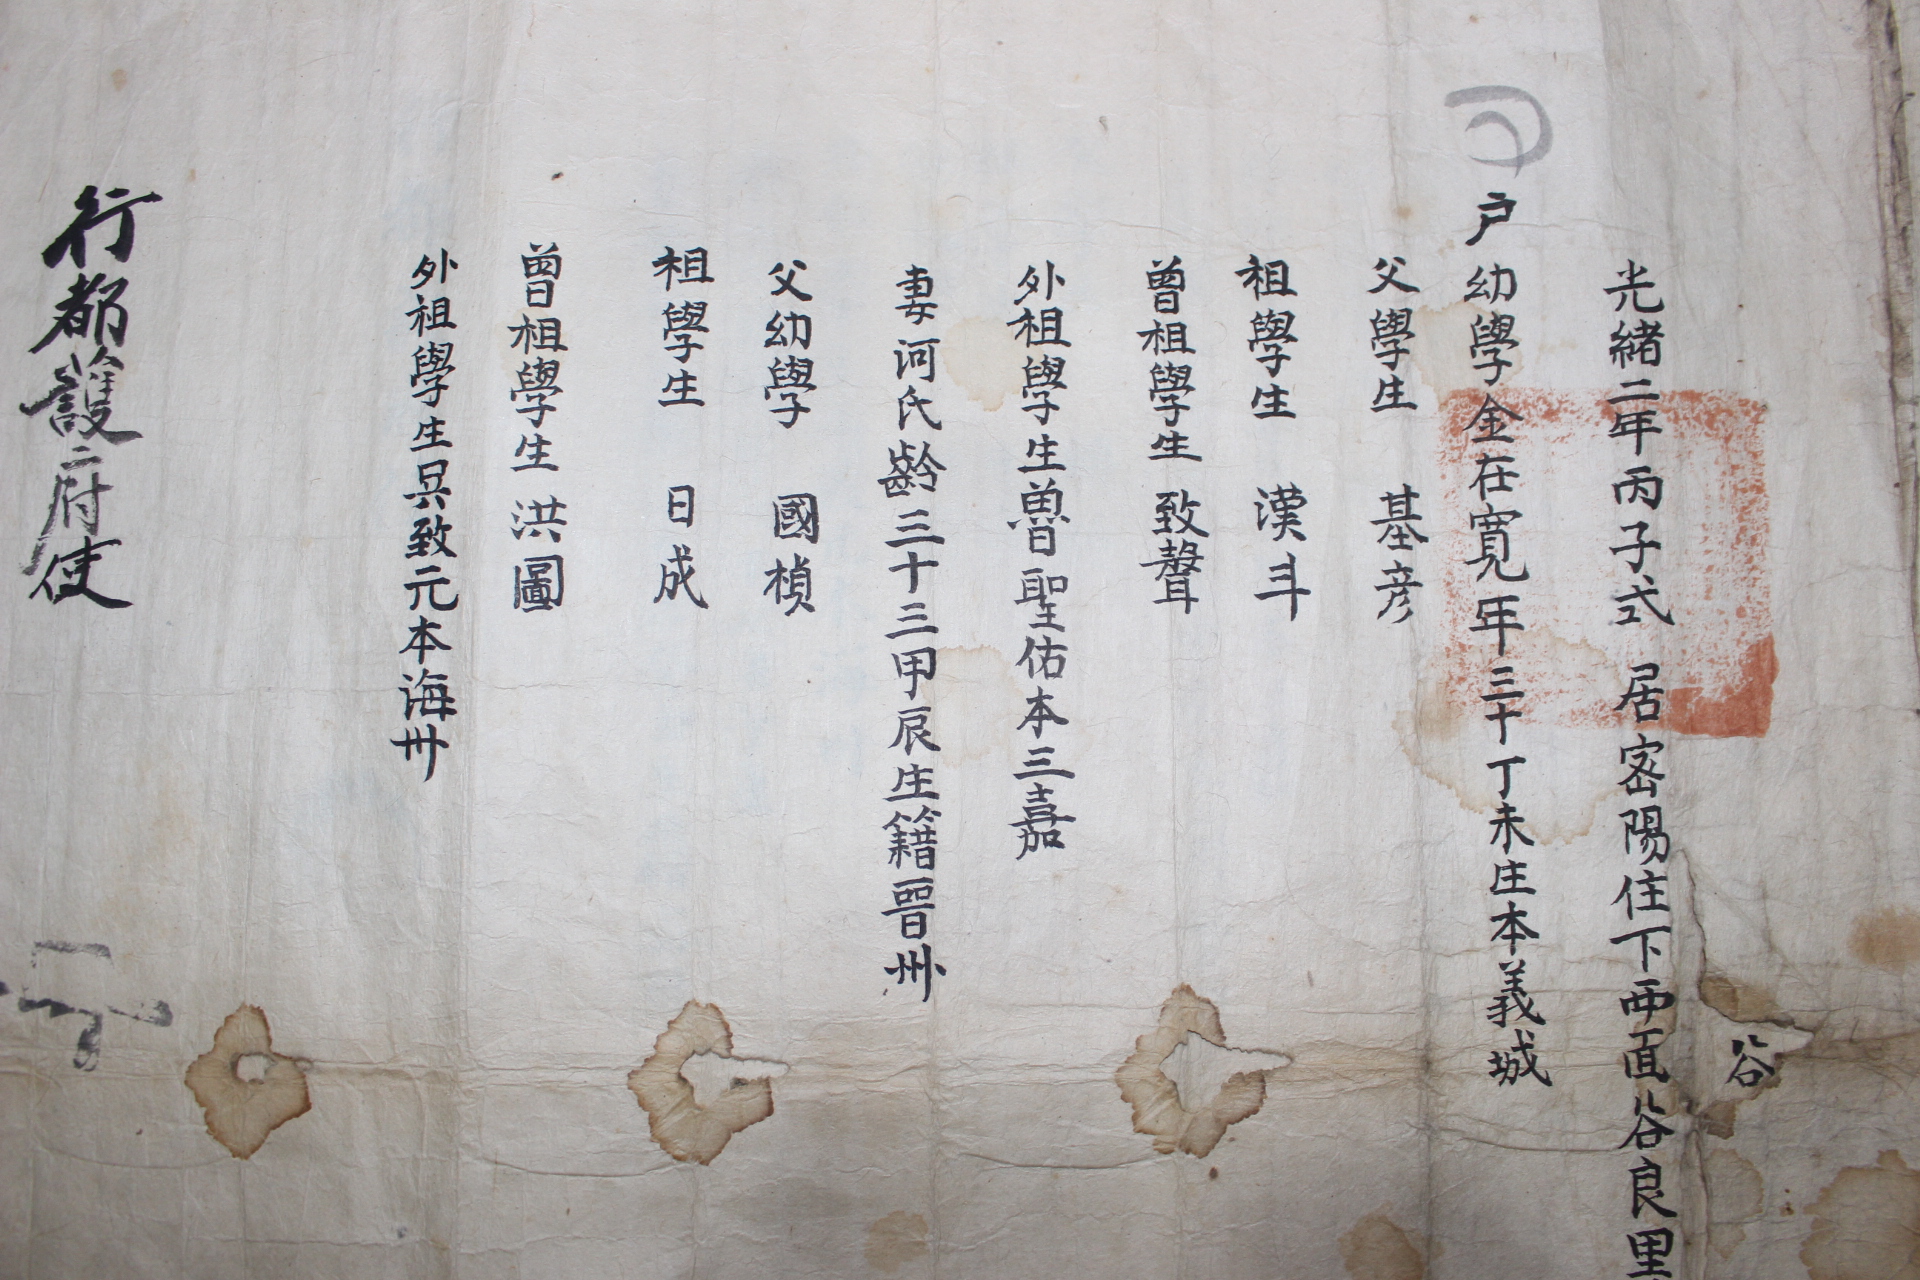 谷
光緒二年丙子式 居密陽住下西面谷良里
戶幼學金在寬年三十丁未生本義城
父學生 基彦
祖學生 漢斗
曾祖學生 致聲
外祖學生曾聖佑本三嘉
妻河氏齡三十三甲辰生籍晋州
父幼學 國楨
祖學生 日成
曾祖學生 洪圖
外祖學生吳致元本海州
行都護府使